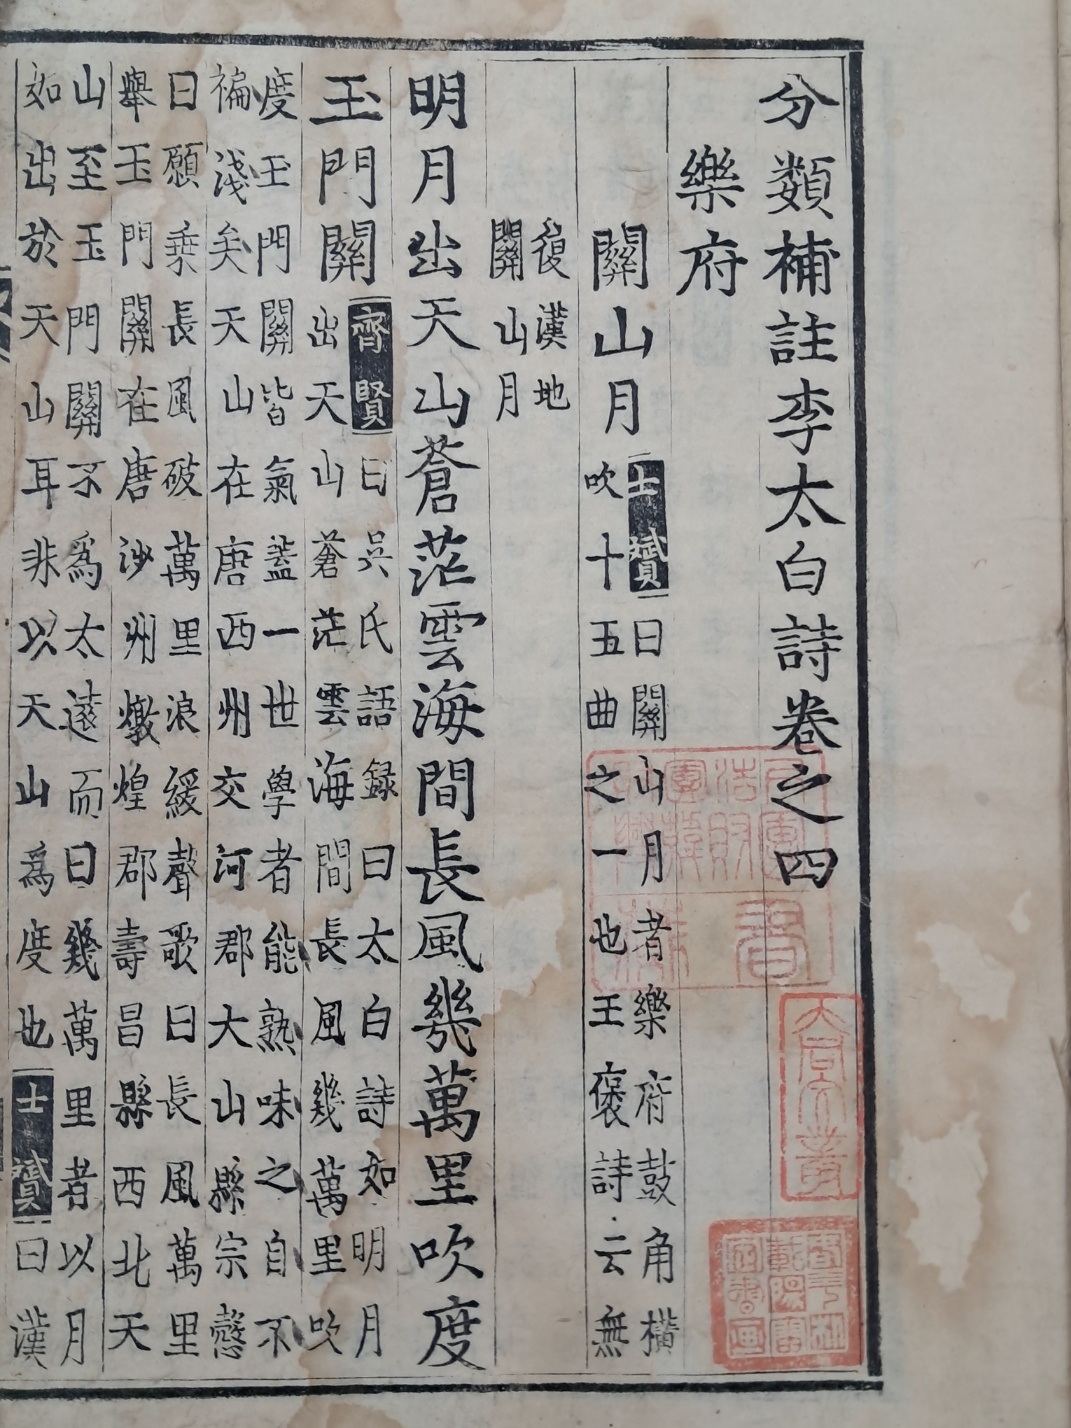 分類補註李太白詩卷之四
樂府
關山月
士贇
曰關山月者樂府鼓角橫
吹十五曲之一也王褒詩云無
復漢地
關山月
明月出天山蒼茫雲海間長風幾萬里吹度
玉門關
齊賢
曰吳氏語録曰太白詩如明月
出天山蒼茫雲海間長風幾萬里吹
度玉門關皆氣蓋一世學者能熟味之自不
褊淺矣天山在唐西州交河郡大山縣宗慤
曰願乘長風破萬里浪緩聲歌曰長風萬里
舉玉門關在唐沙州燉煌郡壽昌縣西北天
山至玉門關不爲太遠而曰幾萬里者以月
如出於天山耳非以天山爲度也
士贇
曰漢